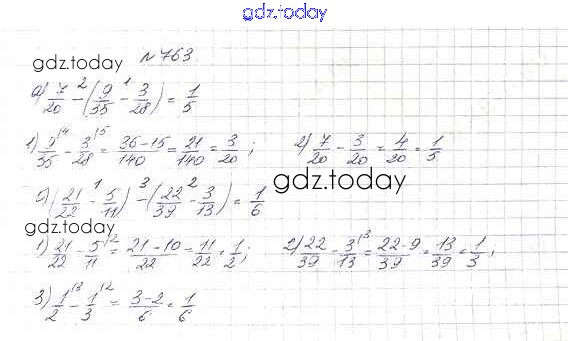 gdz.today
№ 763
gdz.today
а) 7/20 - (9/35 - 3/28) = 1/5
1) 9/35 - 3/28 = 36-15/140 = 21/140 = 3/20 ; 2) 7/20 - 3/20 = 4/20 = 1/5
б) (21/22 - 5/11) - (22/39 - 3/13) = 1/6
gdz.today
gdz.today
1) 21/22 - 5/11 = 21-10/22 = 11/22 = 1/2 ; 2) 22/39 - 3/13 = 22-9/39 = 13/39 = 1/3 ;
3) 1/2 - 1/3 = 3-2/6 = 1/6